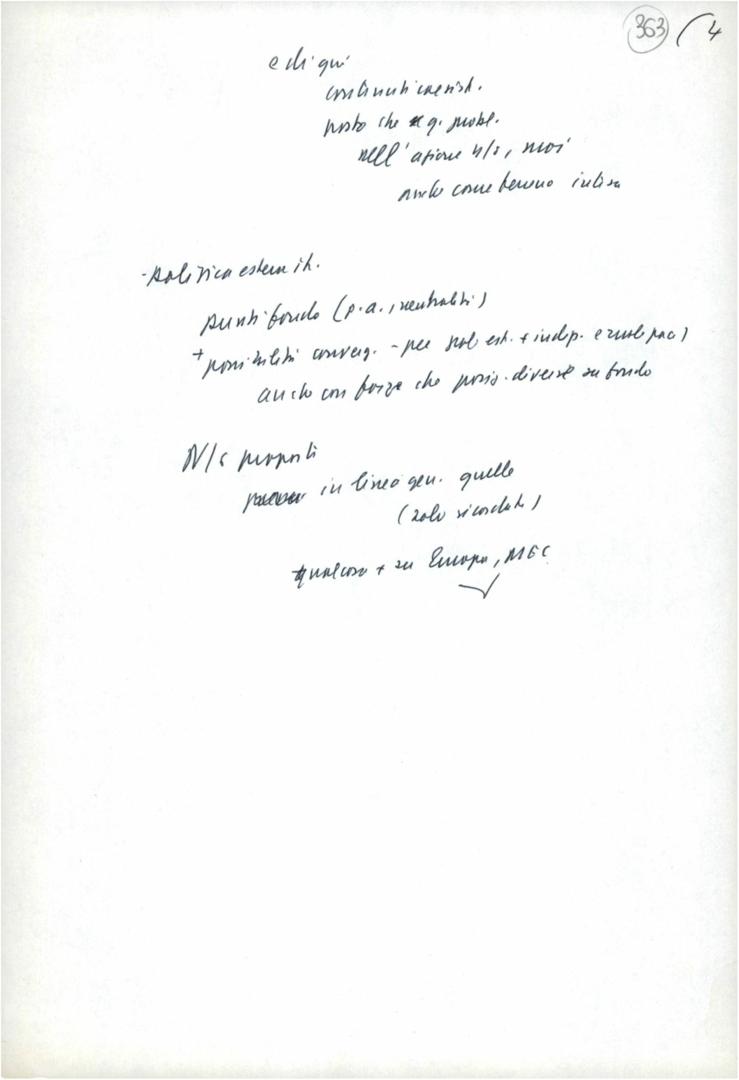 363 (4
e di qui
continuti
posto che q. probl.
nell'azione n/s, noi
anche come terreno intesa
- politica estera it.
punti fondo (p.a., neutralità)
+ possibilità converg. - per pol est. + indip. e ruolo pac)
anche con forze che posiz. diverse su fondo
N/s proposti
in linea gen. quelle
(solo ricordate)
qualcosa + su Europa, MEC